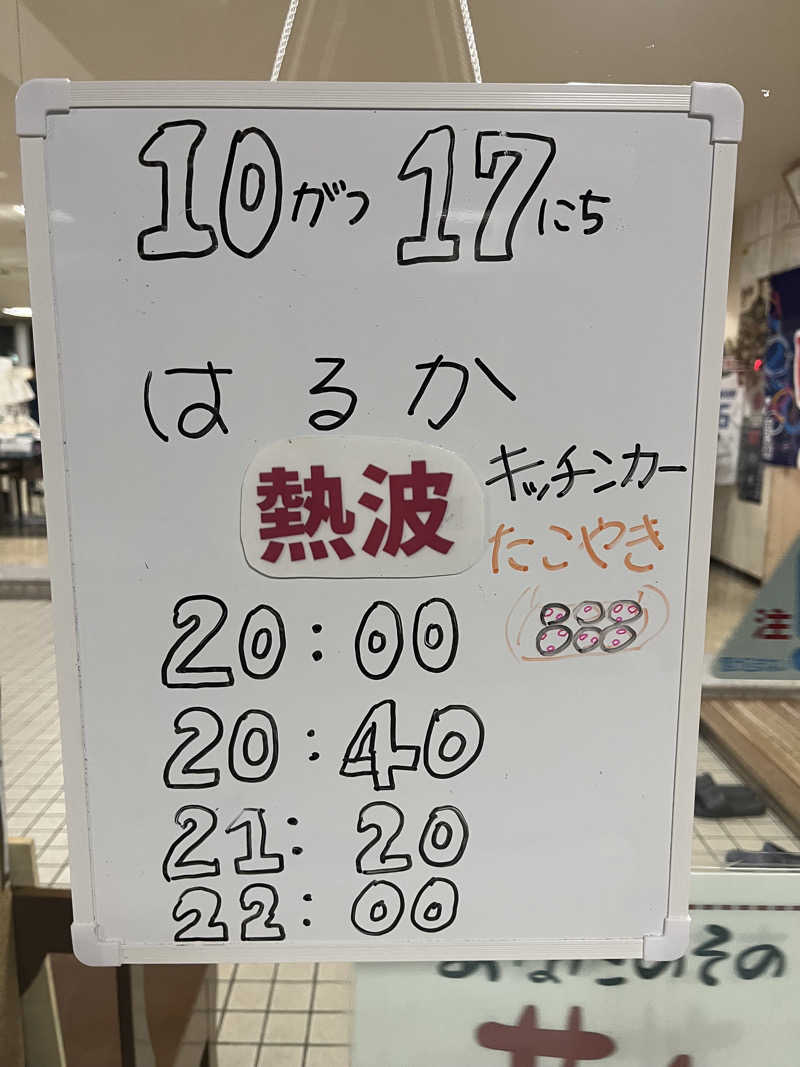 10がつ 17にち
はるか
熱波
キッチンカー
たこやき
20:00
20:40
21:20
22:00
注
あなたのその